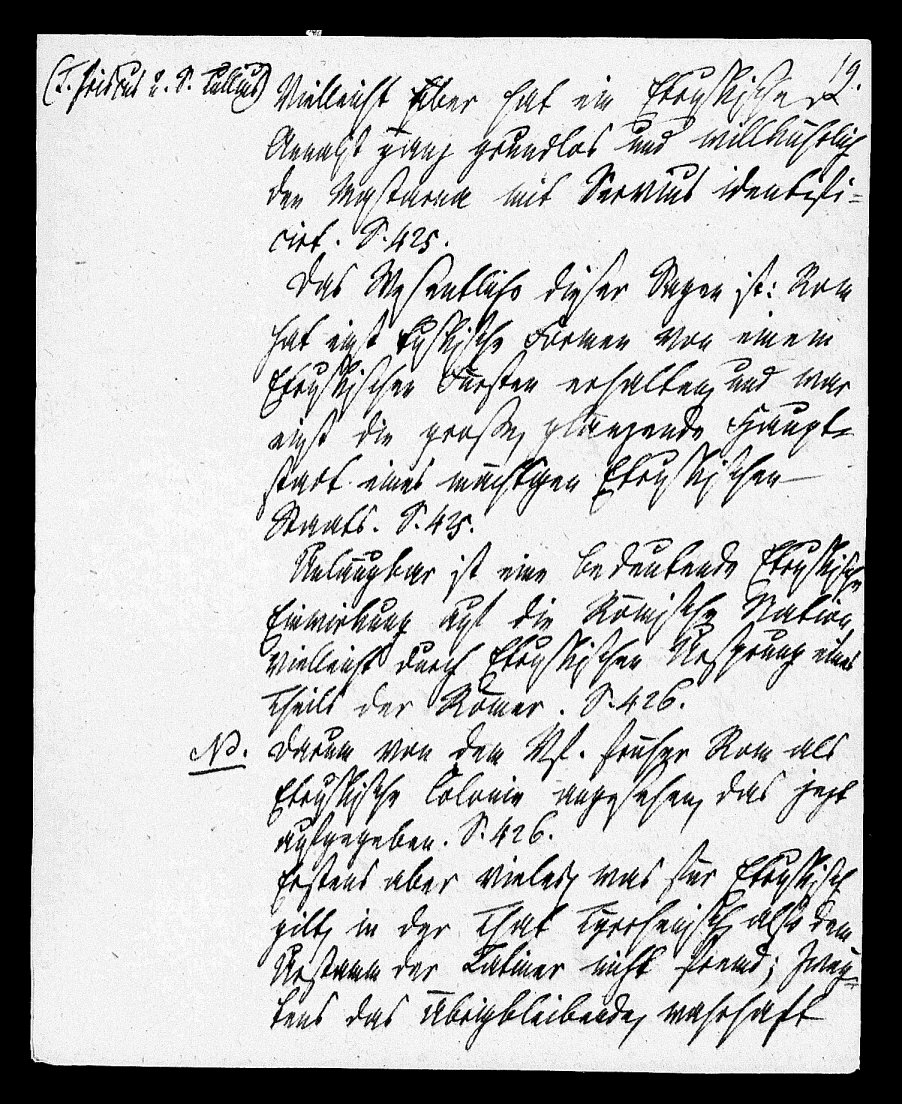 19.
(T. Priscus u. S. Tullius)
Vielleicht aber hat ein Etruskischer
Annalist ganz grundlos und willkührlich
den Mastarna mit Servius identifi-
cirt. S. 425.
Das Wesentliche dieser Sagen ist: Rom
hat einst Tuskische Formen von einem
Etruskischen Fürsten erhalten, und war
einst die große, glänzende Haupt-
stadt eines mächtigen Etruskischen
Staats. S. 425.
Unläugbar ist eine bedeutende Etruskische
Einwirkung auf die Römische Nation,
vielleicht durch Etruskischen Ursprung eines
Theils der Römer. S. 426.
NB. Darum von dem Vf. früher Rom als
Etruskische Colonie angesehen, das jezt
aufgegeben. S. 426.
Erstens aber vieles, was für Etruskisch
gilt, in der That Tyrrhenisch, also dem
Urstamm der Latiner nicht fremd; zwey-
tens das übrigbleibende, wahrhaft